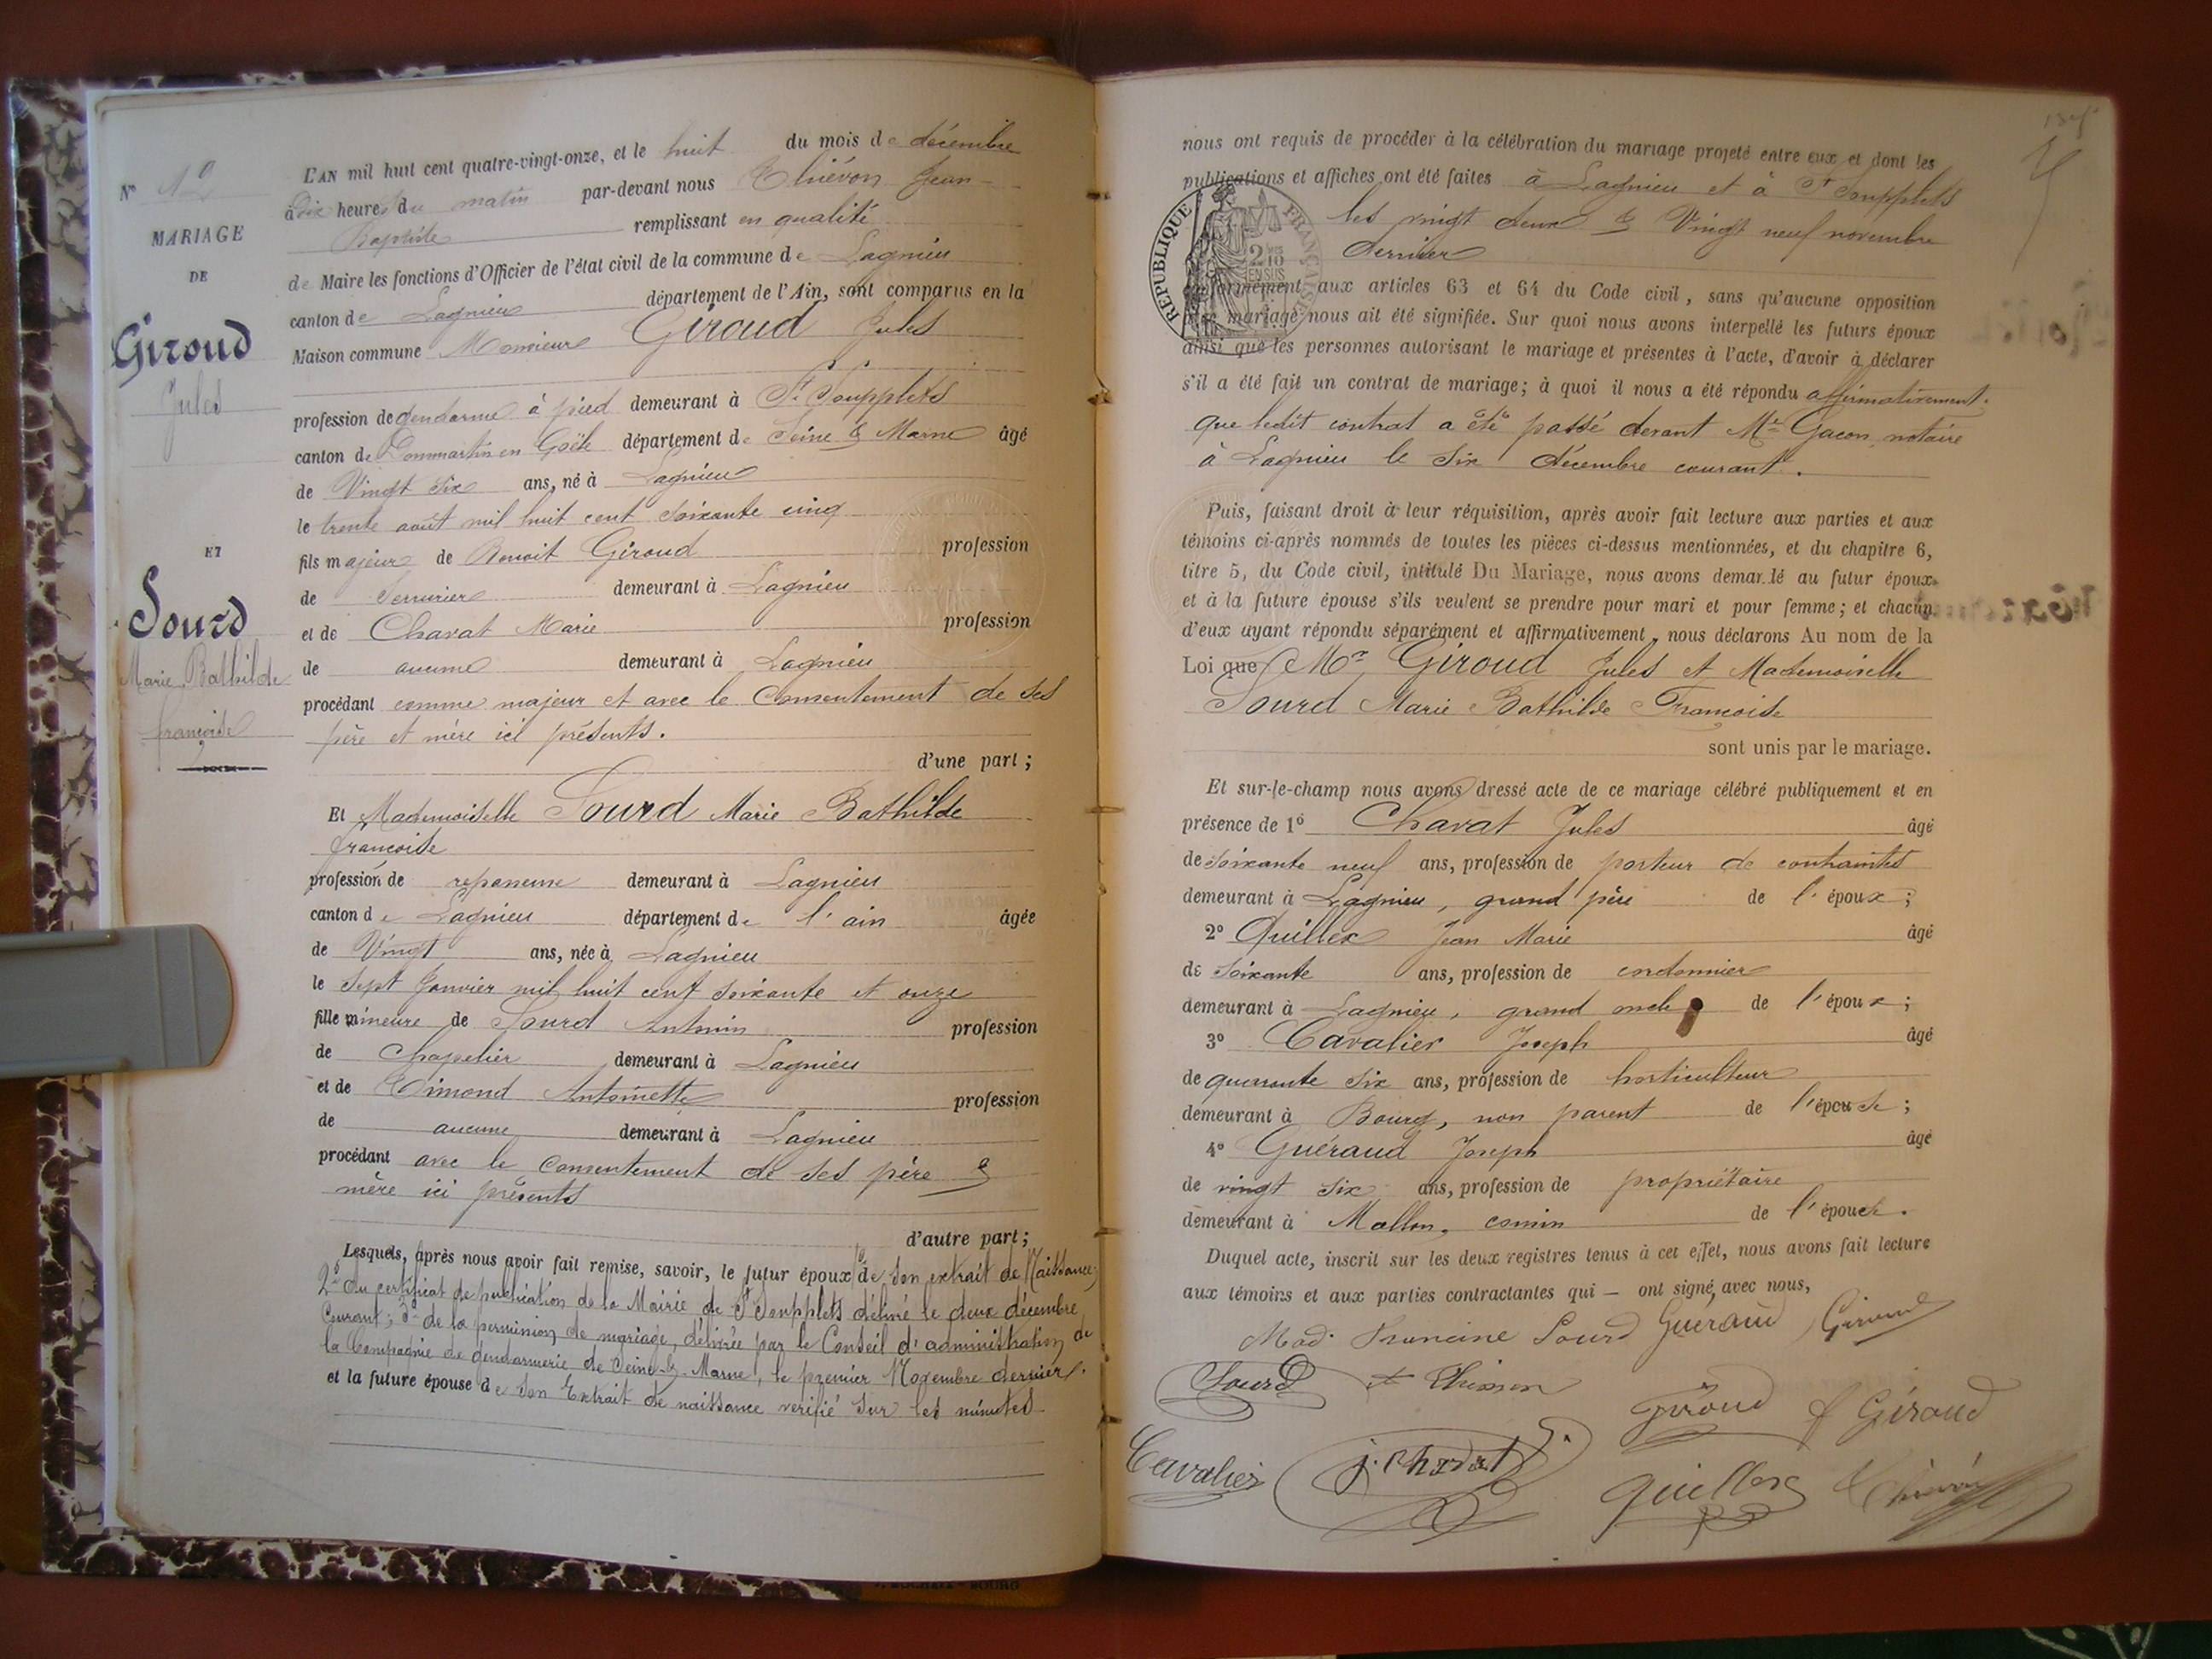 N° 12
MARIAGE
DE
Giroud
Jules
ET
Sourd
Marie Bathilde
françoise
L'AN mil huit cent quatre-vingt-onze, et le huit du mois de décembre
à dix heures du matin par-devant nous Thiévon Jean-
Baptiste remplissant en qualité
de Maire les fonctions d'Officier de l'état civil de la commune de Lagnieu
canton de Lagnieu département de l'Ain, sont comparus en la
Maison commune Monsieur Giroud Jules
profession de gendarme à pied demeurant à St Soupplets
canton de Dommartin en Goële département de Seine & Marne âgé
de Vingt six ans, né à Lagnieu
le trente août mil huit cent soixante cinq
fils majeur de Benoit Giroud profession
de Serrurier demeurant à Lagnieu
et de Charat Marie profession
de aucune demeurant à Lagnieu
procédant comme majeur et avec le Consentement de ses
père et mère ici présents.
d'une part ;
Et Mademoiselle Sourd Marie Bathilde
françoise
profession de repasseuse demeurant à Lagnieu
canton de Lagnieu département de l'ain âgée
de Vingt ans, née à Lagnieu
le sept Janvier mil huit cent soixante et onze
fille mineure de Sourd Antonin profession
de Chapelier demeurant à Lagnieu
et de Simond Antoinette profession
de aucune demeurant à Lagnieu
procédant avec le consentement de ses père &
mère ici présents
d'autre part ;
Lesquels, après nous avoir fait remise, savoir, le futur époux 1° de son extrait de Naissance;
2° du certificat de publication de la Mairie de St Soupplets délivré le deux décembre
Courant ; 3° de la permission de mariage, délivrée par le Conseil d'administration de
la Compagnie de gendarmerie de Seine & Marne, le premier Novembre dernier.
et la future épouse de son Extrait de naissance verifié sur les minutes
nous ont requis de procéder à la célébration du mariage projeté entre eux et dont les
publications et affiches ont été faites à Lagnieu et à St Soupplets
les vingt deux & Vingt neuf novembre
dernier
RÉPUBLIQUE FRANÇAISE
aux articles 63 et 64 du Code civil, sans qu'aucune opposition
mariage nous ait été signifiée. Sur quoi nous avons interpellé les futurs époux
ainsi que les personnes autorisant le mariage et présentes à l'acte, d'avoir à déclarer
s'il a été fait un contrat de mariage ; à quoi il nous a été répondu affirmativement.
que ledit contrat a été passé devant Me Gacon, notaire
à Lagnieu le six décembre courant.
Puis, faisant droit à leur réquisition, après avoir fait lecture aux parties et aux
témoins ci-après nommés de toutes les pièces ci-dessus mentionnées, et du chapitre 6,
titre 5, du Code civil, intitulé Du Mariage, nous avons demandé au futur époux
et à la future épouse s'ils veulent se prendre pour mari et pour femme ; et chacun
d'eux ayant répondu séparément et affirmativement, nous déclarons Au nom de la
Loi que Mr Giroud Jules et Mademoiselle
Sourd Marie Bathilde Françoise
sont unis par le mariage.
Et sur-le-champ nous avons dressé acte de ce mariage célébré publiquement et en
présence de 1° Charat Jules âgé
de soixante neuf ans, profession de porteur de contraintes
demeurant à Lagnieu, grand père de l'époux ;
2° Quillex Jean Marie âgé
de soixante ans, profession de cordonnier
demeurant à Lagnieu, grand oncle de l'époux ;
3° Cavalier Joseph âgé
de quarante six ans, profession de horticulteur
demeurant à Bourg, non parent de l'épouse ;
4° Guéraud Joseph âgé
de vingt six ans, profession de propriétaire
demeurant à Mollon, cousin de l'épouse.
Duquel acte, inscrit sur les deux registres tenus à cet effet, nous avons fait lecture
aux témoins et aux parties contractantes qui — ont signé avec nous,
Mad. Francine Sourd Guéraud Giroud
Sourd
Giroud J Giroud
Cavalier J. Charat Quillex Thiévon